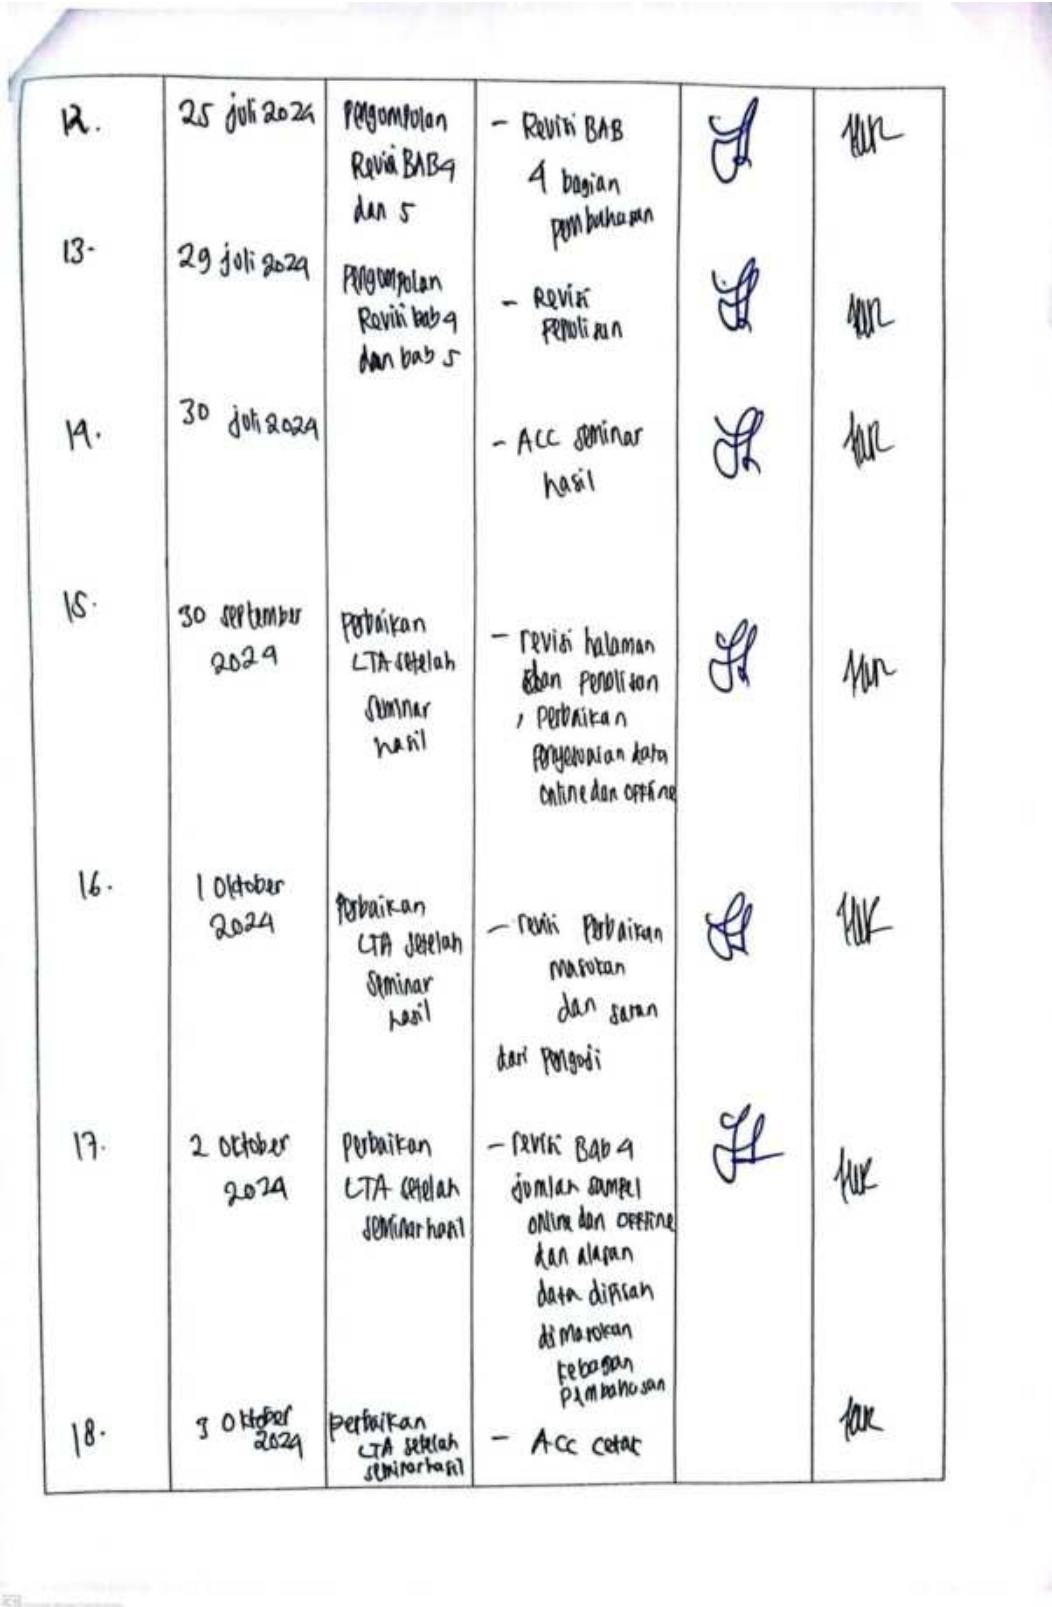 12.
25 juli 2024
Pengumpulan
Revisi BAB 4
dan 5
- Revisi BAB
4 bagian
pembahasan
13.
29 juli 2024
Pengumpulan
Revisi bab 4
dan bab 5
- Revisi
Penulisan
14.
30 juli 2024
- ACC seminar
hasil
15.
30 september
2024
Perbaikan
LTA setelah
seminar
hasil
- revisi halaman
dan Penulisan
, perbaikan
penyesuaian data
online dan offline
16.
1 Oktober
2024
Perbaikan
LTA setelah
seminar
hasil
- revisi Perbaikan
masukan
dan saran
dari Penguji
17.
2 Oktober
2024
Perbaikan
LTA setelah
seminar hasil
- revisi Bab 4
jumlah sampel
online dan offline
dan alasan
data dipisah
dimasukan
kebagian
pembahasan
18.
3 Oktober
2024
perbaikan
LTA setelah
seminar hasil
- ACC cetak